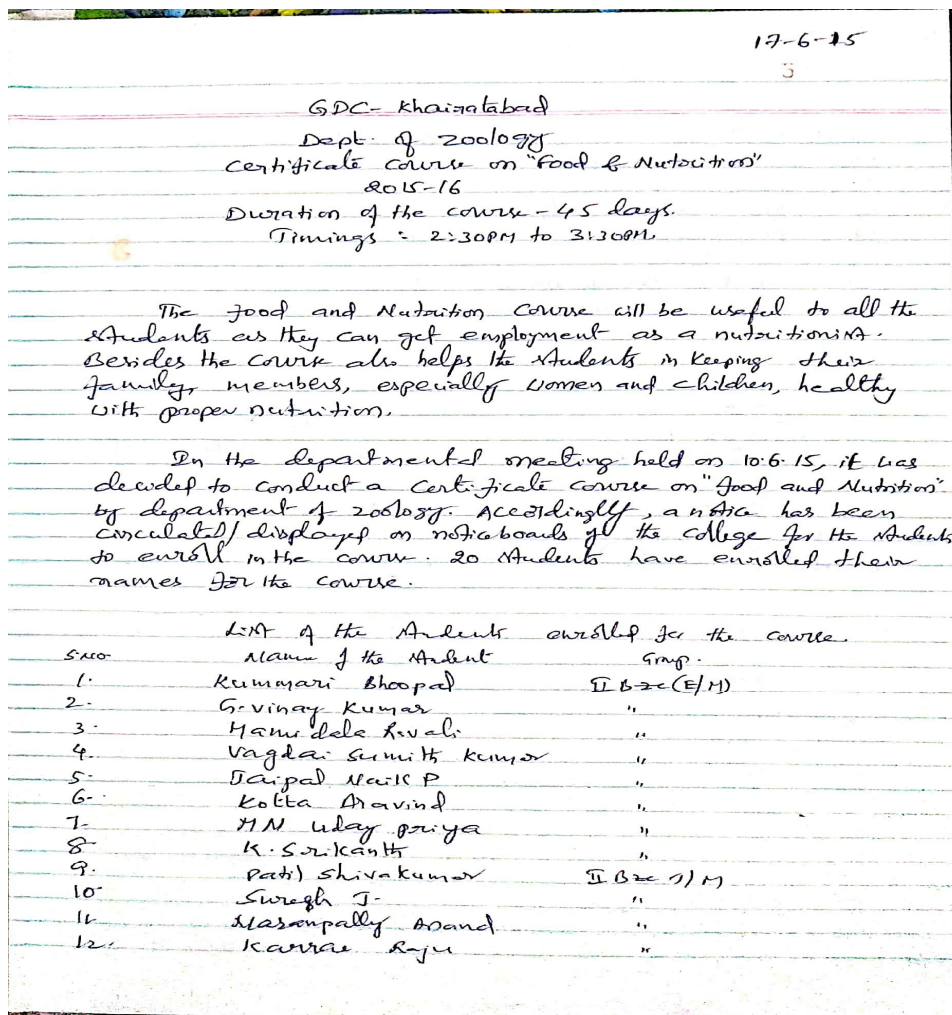 17-6-15
GDC- Khairatabad
Dept. of Zoology
Certificate Course on "Food & Nutrition"
2015-16
Duration of the course - 45 days.
Timings : 2:30PM to 3:30PM.
The food and Nutrition Course will be useful to all the
students as they can get employment as a nutritionist.
Besides the course also helps the students in keeping their
family, members, especially women and children, healthy
with proper nutrition.
In the departmental meeting held on 10.6.15, it was
decided to conduct a Certificate course on "food and Nutrition"
by department of zoology. Accordingly, a notice has been
circulated/displayed on noticeboards of the college for the students
to enroll in the course. 20 students have enrolled their
names for the course.
List of the students enrolled for the course.
S.No- Name of the student Group.
1. Kummari Bhoopal II Bzc (E/M)
2. G. Vinay Kumar "
3. "
4. Vagdai Sumith Kumar "
5. Jaipal Naik P "
6. Kotta Aravind "
7. MN Uday priya "
8. K. Srikanth "
9. Patil Shivakumar II Bzc T/M
10- Suregh J- "
11. Masanpally Anand "
12. Karrae Raju "